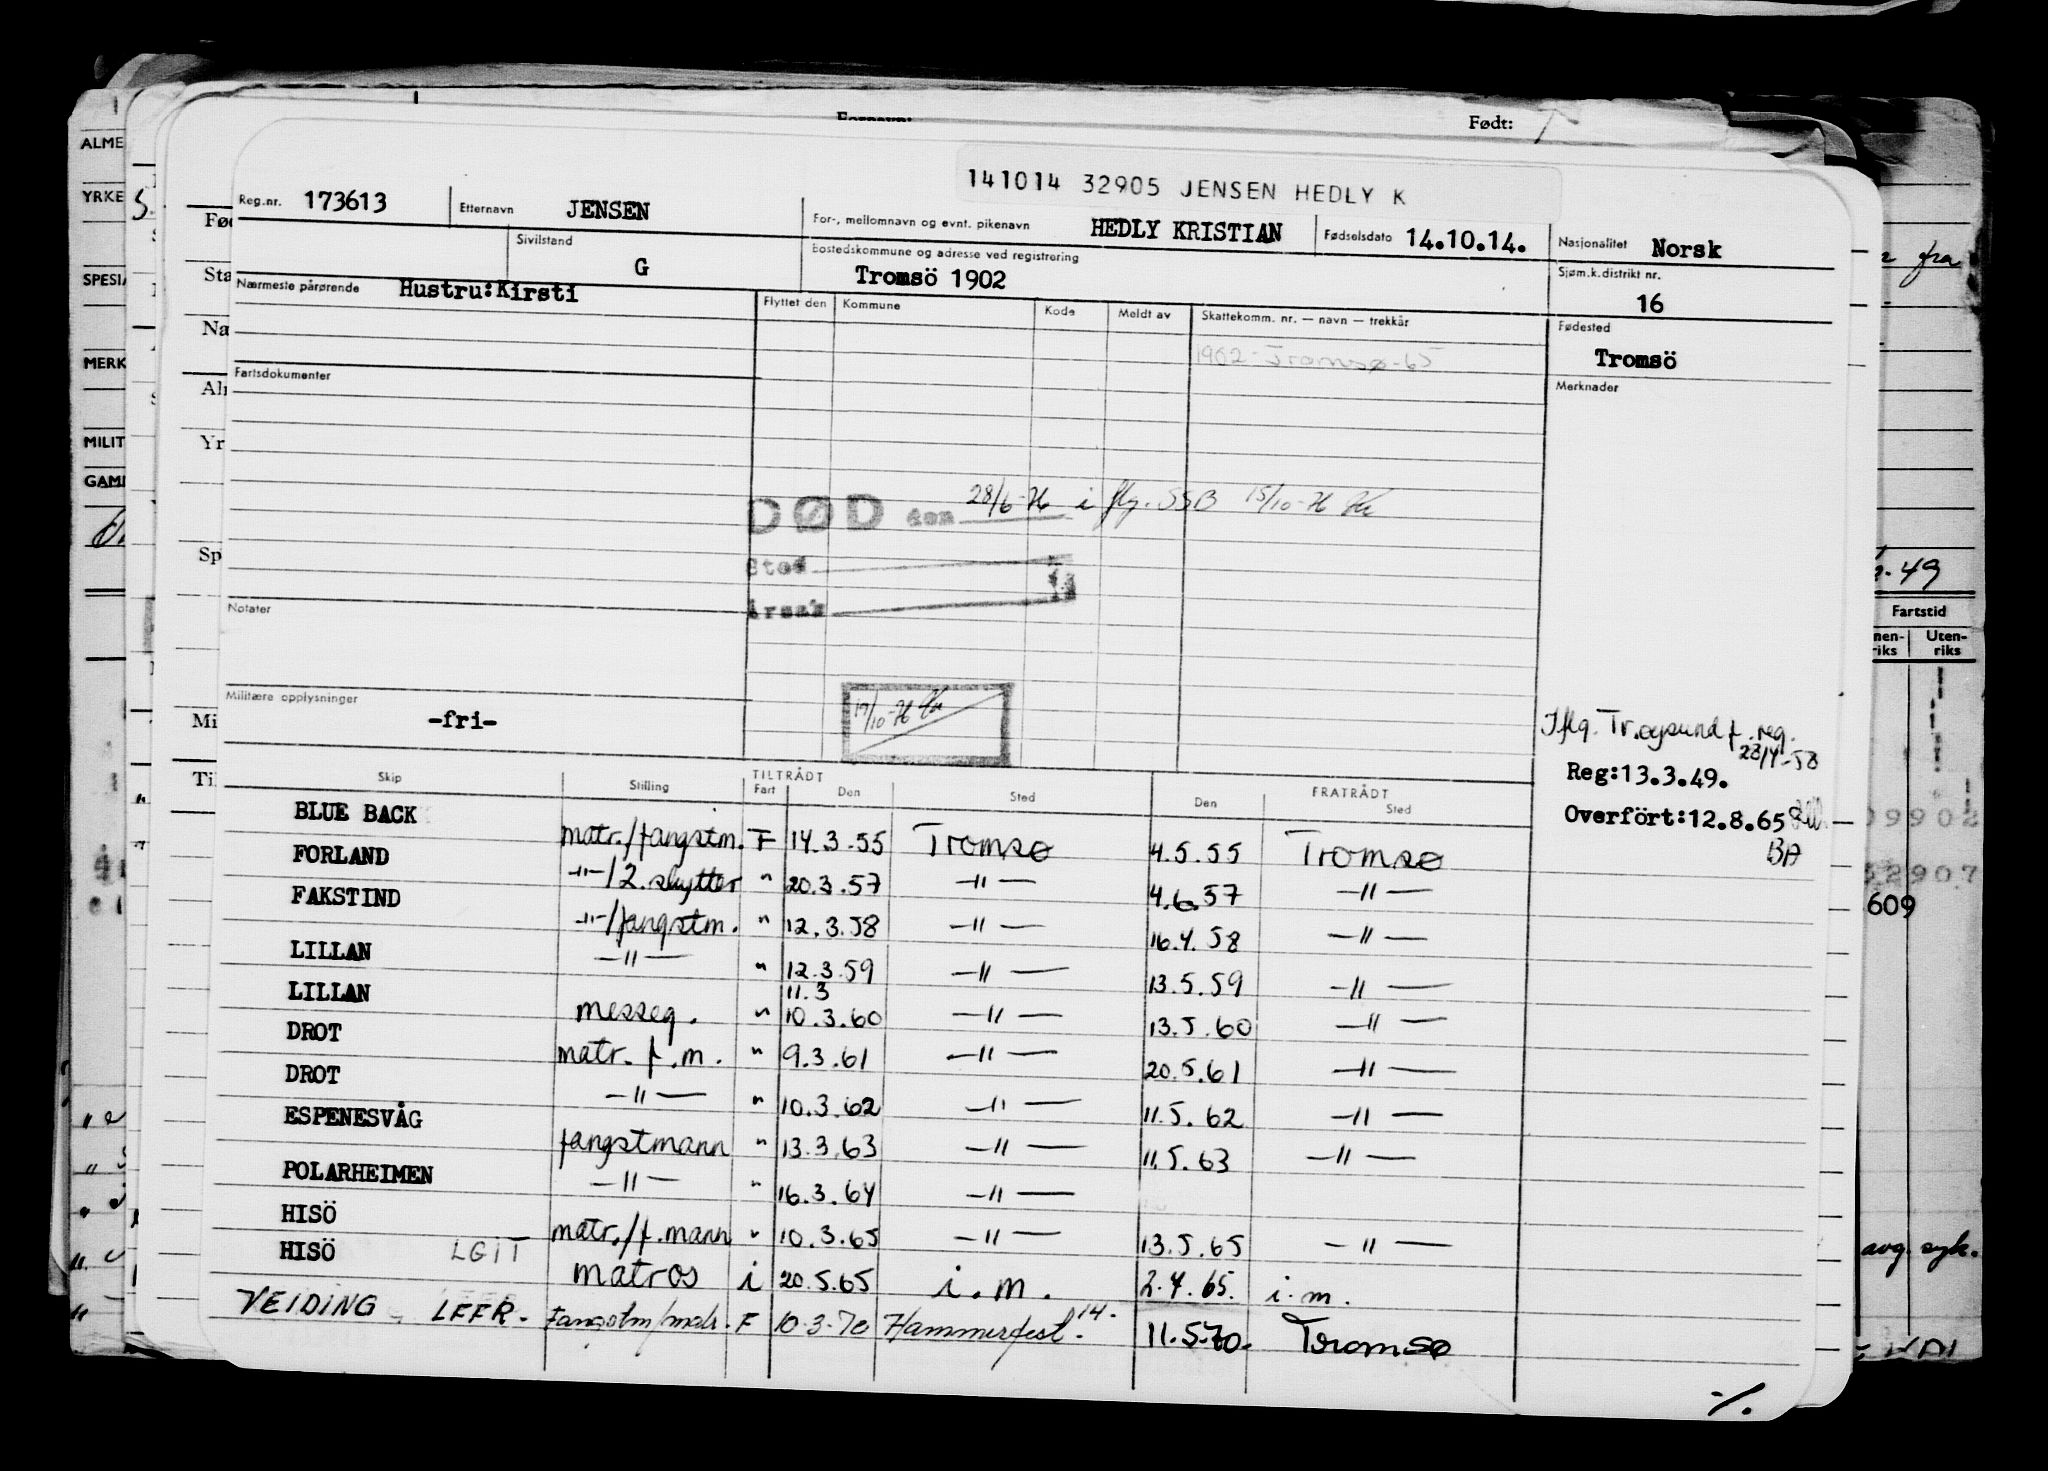 Født:
141014 32905 JENSEN HEDLY K
Reg.nr. 173613 Etternavn JENSEN For-, mellomnavn og evnt. pikenavn HEDLY KRISTIAN Fødselsdato 14.10.14. Nasjonalitet Norsk
Sivilstand G Bostedskommune og adresse ved registrering Tromsö 1902 Sjøm.k.distrikt nr. 16
Nærmeste pårørende Hustru:Kirsti Flyttet den Kommune Kode Meldt av Skattekomm. nr. — navn — trekkår Fødested
1902-Tromsø-65 Tromsö
Fartsdokumenter Merknader
DØD den 28/6-76 i flg. SSB 15/10-76
Sted
Årsak
Notater
Militære opplysninger -fri- 19/10-76
Iflg. Tr.øysund f. reg.
Reg:13.3.49.
Overført:12.8.65
BA
Skip Stilling TILTRÅDT Fart Den Sted FRATRÅDT Den Sted
BLUE BACK matr./fangstm. F 14.3.55 Tromsø 4.5.55 Tromsø
FORLAND -"-/2.skytter " 20.3.57 -"- 4.6.57 -"-
FAKSTIND -"-/fangstm. " 12.3.58 -"- 16.4.58 -"-
LILLAN -"- " 12.3.59 -"- 13.5.59 -"-
11.3
LILLAN messeg. " 10.3.60 -"- 13.5.60 -"-
DROT matr. f.m. " 9.3.61 -"- 20.5.61 -"-
DROT -"- " 10.3.62 -"- 11.5.62 -"-
ESPENESVÅG fangstmann " 13.3.63 -"- 11.5.63 -"-
POLARHEIMEN -"- " 16.3.64 -"-
HISÖ matr./f.mann " 10.3.65 -"- 13.5.65 -"-
HISÖ LGIT matros i 20.5.65 i.m. 2.7.65. i.m.
VEIDING LEFR. fangstm/matr. F 10-3-70 Hammerfest 14. 11.5.70. Tromsø
-/.
ALME
YRKE
SPESIA
MERK
MILIT
GAMM
Fød
Sta
Næ
Alm
Yr
Sp
Mi
Til
fra
49
Fartstid
nen-riks Uten-riks
09902
52907
609
avg. syk.